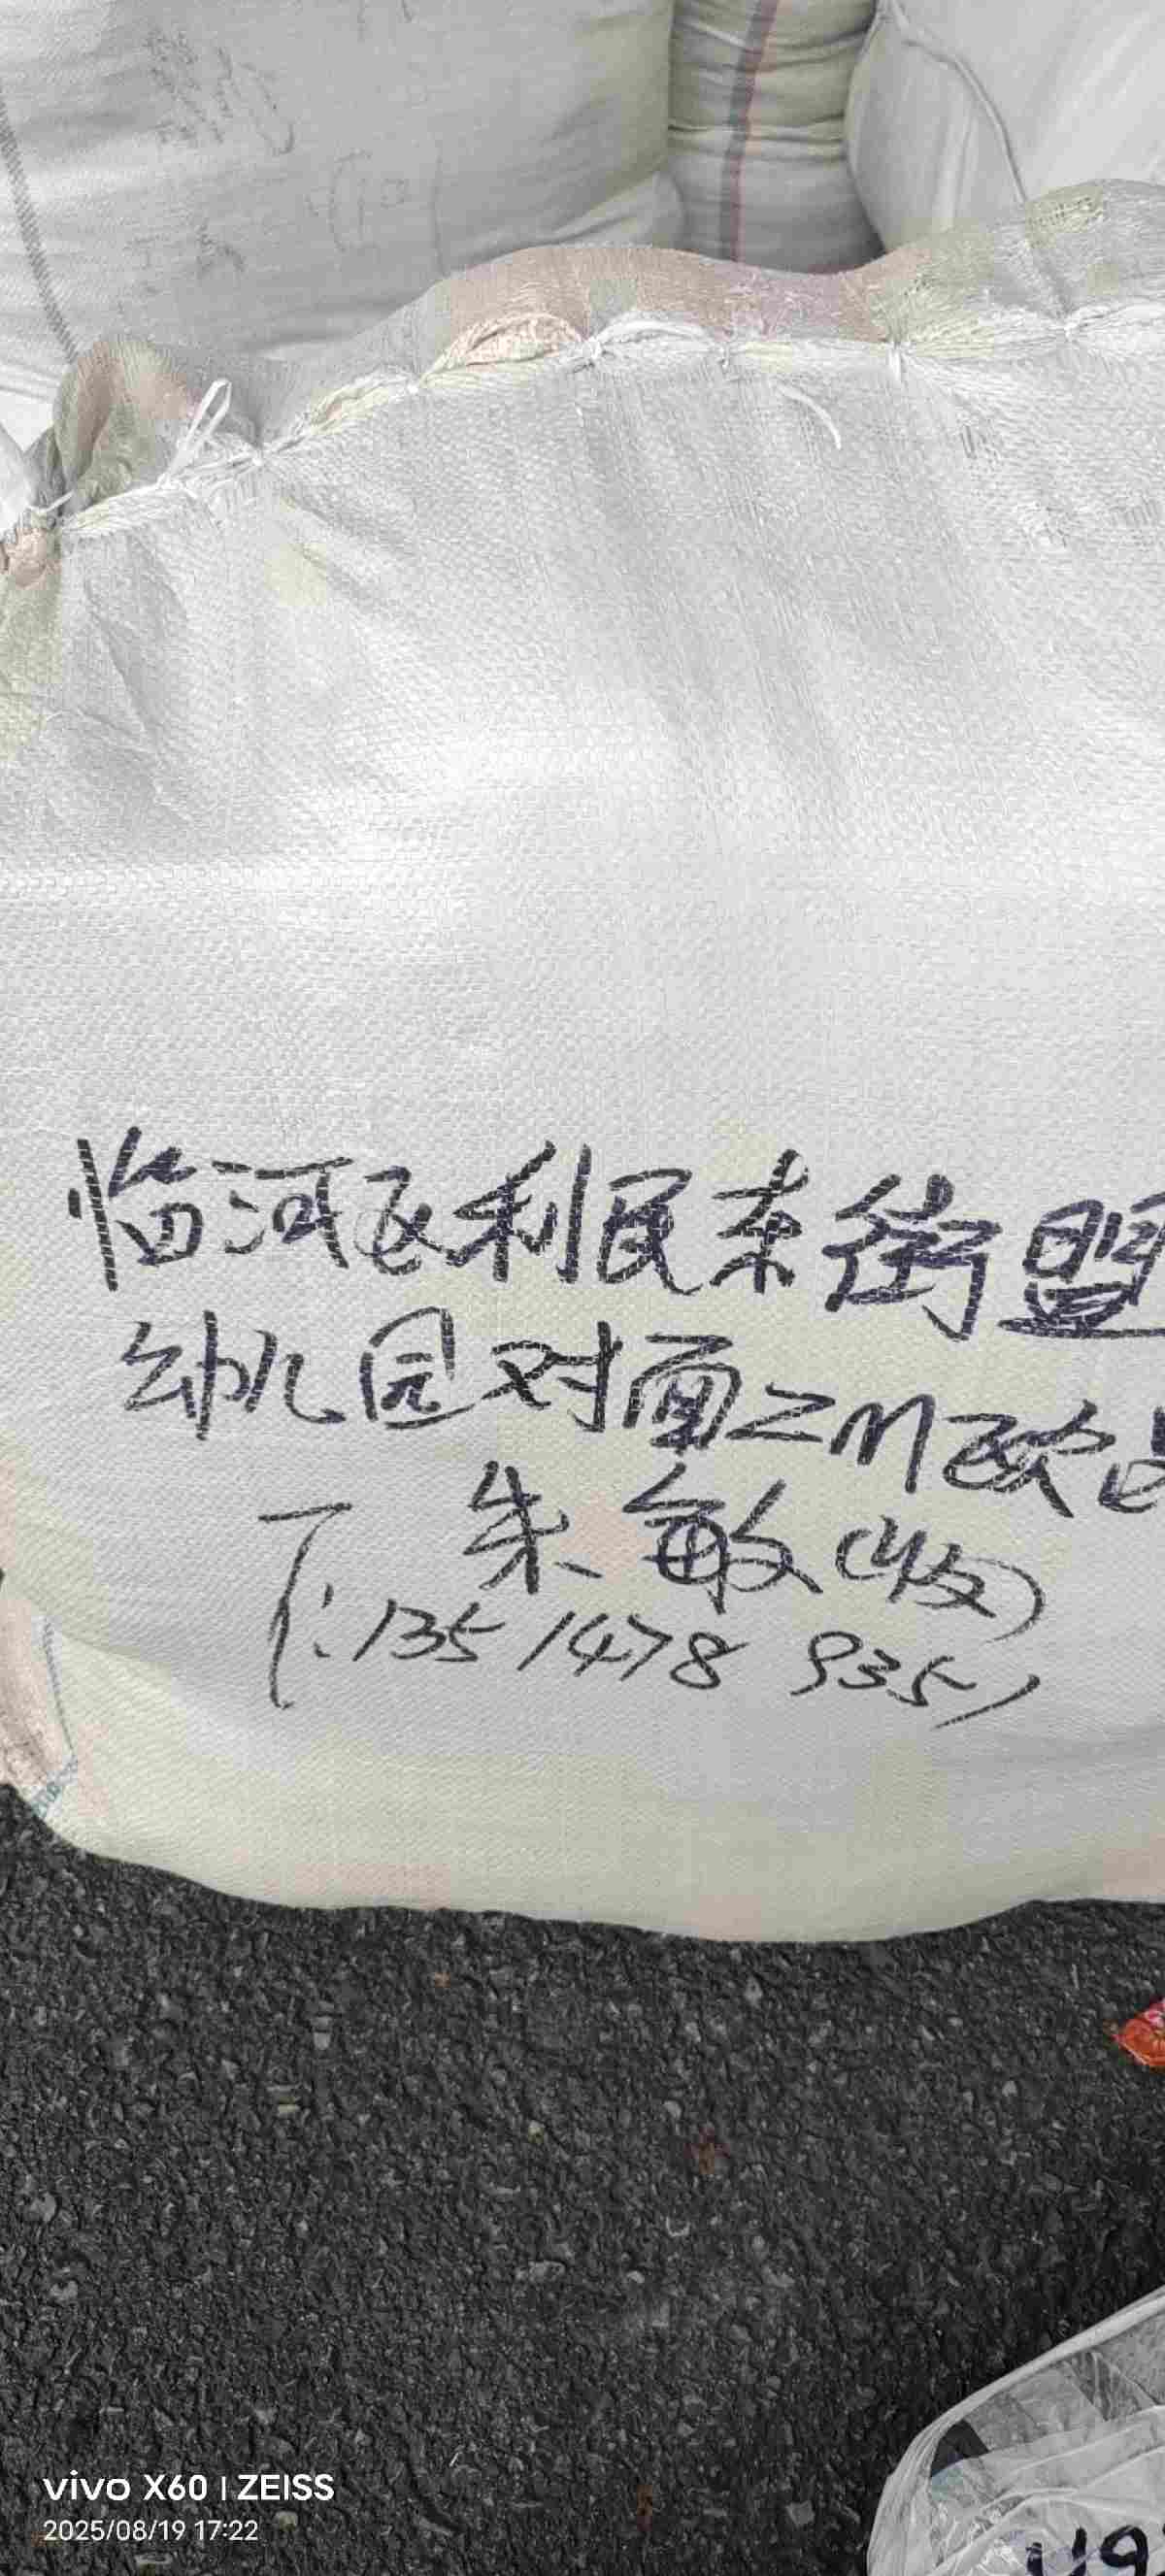 临河区利民东街盟
幼儿园对面ZM改
朱敏(收)
T:135 1478 9351
vivo X60 | ZEISS
2025/08/19 17:22